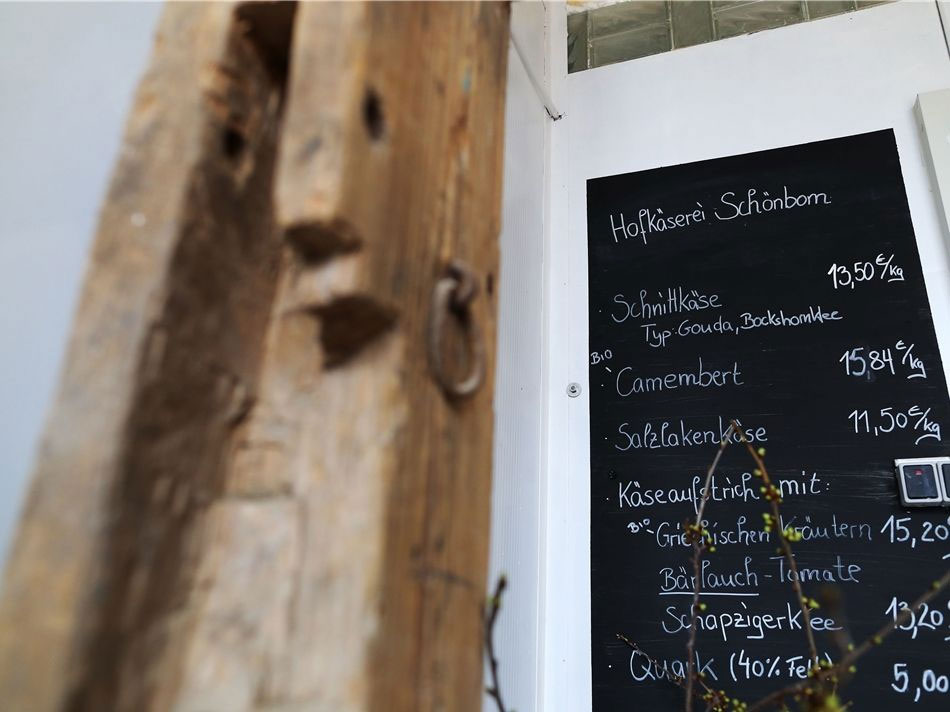 Hofkäserei Schönborn
13,50 €/kg
· Schnittkäse
Typ: Gouda, Bockshornklee
BIO
· Camembert 15,84 €/kg
· Salzlakenkäse 11,50 €/kg
· Käseaufstrich mit:
BIO - Griechischen Kräutern 15,20
Bärlauch - Tomate
Schapzigerklee 13,20
· Quark (40% Fett) 5,00